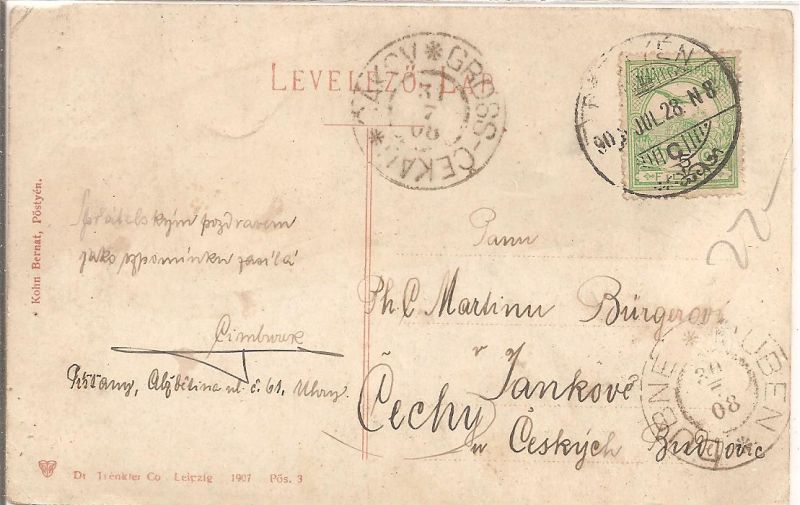 LEVELEZŐ-LAP
GROSS-ČEKAU
31
7
08
908 JUL. 28. N 8
Kohn Bernat, Pöstyén.
přátelským pozdravem
jako vzpomínku zasílá
Cimburek
Píšťany, Alžbětina ul. č. 61, Uhry.
Panu
Ph C Martinu Bürgerovi
v Jankově
Čechy
u Českých Budějovic
22-
08
Dr Trenkler Co Leipzig 1907 Pös. 3